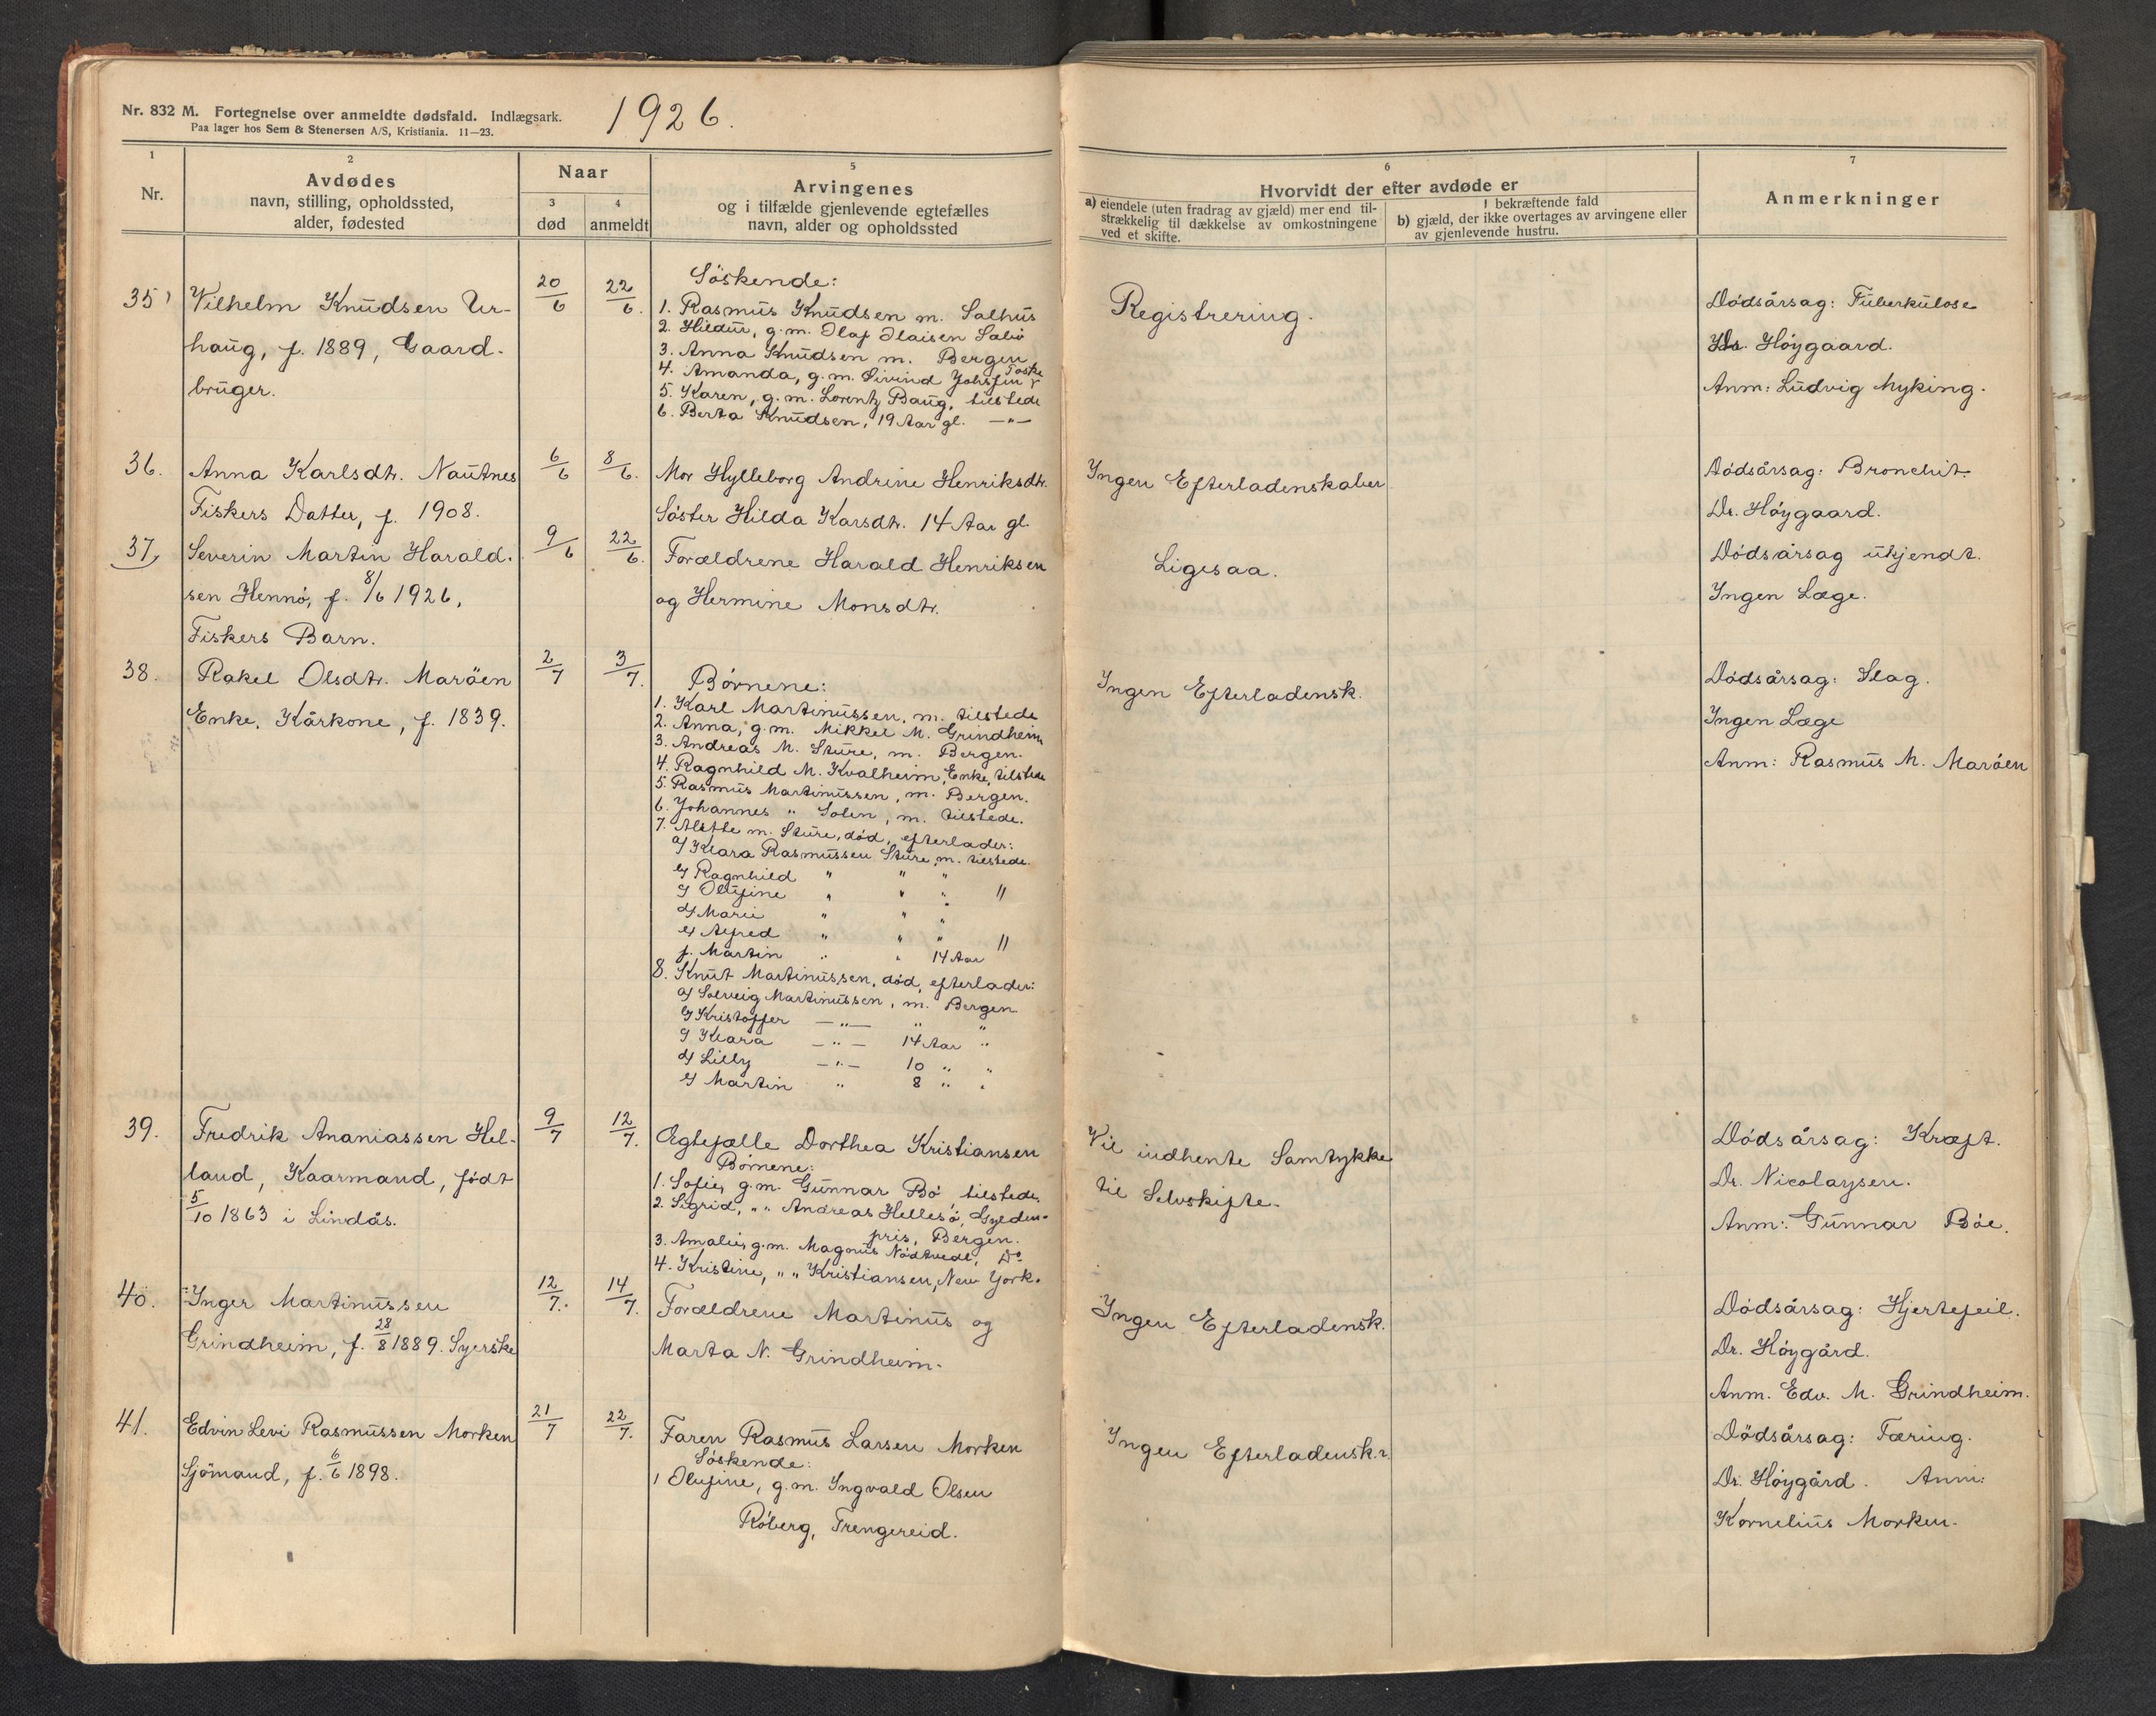 Nr. 832 M. Fortegnelse over anmeldte dødsfald. Indlægsark.
Paa lager hos Sem & Stenersen A/S, Kristiania. 11—23.
1926.
1
Nr.
2
Avdødes
navn, stilling, opholdssted,
alder, fødested
Naar
3
død
4
anmeldt
5
Arvingenes
og i tilfælde gjenlevende egtefælles
navn, alder og opholdssted
6
Hvorvidt der efter avdøde er
a) eiendele (uten fradrag av gjæld) mer end til-
strækkelig til dækkelse av omkostningene
ved et skifte.
I bekræftende fald
b) gjæld, der ikke overtages av arvingene eller
av gjenlevende hustru.
7
Anmerkninger
35
Vilhelm Knudsen Ur-
haug, f. 1889, Gaard-
bruger.
20/6
22/6.
Söskende:
1. Rasmus Knudsen m. Salhus
2. Hildur, g.m. Olaf Olaisen Sæbö
3. Anna Knudsen m. Bergen
4. Amanda, g.m. Eivind Toska
5. Karen, g.m. Lorentz Baug, tilstede
6. Berta Knudsen, 19 Aar gl. —"—
Registrering.
Dódsårsag: Tuberkulose
Dr. Höygaard.
Anm: Ludvig Myking.
36.
Anna Karlsdtr. Nautnes
Fiskers Datter, f. 1908.
6/6
8/6.
Mor Hylleborg Andrine Henriksdtr.
Söster Hilda Karsdtr. 14 Aar gl.
Ingen Efterladenskaber
Dódsårsag: Bronchit.
Dr. Höygaard.
37,
Severin Martin Harald-
sen Hennö, f. 8/6 1926,
Fiskers Barn.
9/6
22/6.
Forældrene Harald Henriksen
og Hermine Monsdtr.
Ligesaa.
Dódsårsag ukjendt.
Ingen Læge.
38.
Rakel Olsdtr. Maröen
Enke, Kårkone, f. 1839.
2/7
3/7.
Börnene:
1. Karl Martinussen, m. tilstede
2. Anna, g.m. Mikkel M. Grindheim
3. Andreas M. Sture, m. Bergen.
4. Ragnhild M. Kvalheim, Enke, tilstede
5. Rasmus Martinussen, m. Bergen.
6. Johannes " Solen, m. tilstede.
7. m. Sture, död, efterlader:
a/ Klara Rasmussen Sture, m. tilstede.
b/ Ragnhild " " "
c/ Olufine " " " "
d/ Marie " " "
e/ Alfred " " " "
f. Martin " " 14 Aar
8. Knut Martinussen, död, efterlader:
a/ Solveig Martinussen, m. Bergen
b/ Kristoffer —"— " "
c/ Klara —"— 14 Aar "
d/ Lilly —"— 10 " "
e/ Martin " 8 " "
Ingen Efterladensk.
Dódsårsag: Slag.
Ingen Læge
Anm: Rasmus M. Maröen
39.
Fredrik Ananiassen Hel-
land, Kaarmand, födt
5/10 1863 i Lindås.
9/7
12/7.
Ægtefælle Dorthea Kristiansen
Börnene:
1. Sofie, g.m. Gunnar Bö, tilstede,
2. Sigrid, " " Andreas Hellesö, Gylden-
pris, Bergen.
3. Amalie, g.m. Magnus Nödtvedt, Do
4. Kristine, " " Kristiansen, New York.
Vil indhente Samtykke
til Selvskifte.
Dódsårsag: Kræft.
Dr. Nicolaysen.
Anm: Gunnar Böe.
40.
Inger Martinussen
Grindheim, f. 28/8 1889. Syerske
12/7.
14/7.
Forældrene Martinus og
Marta N. Grindheim.
Ingen Efterladensk.
Dódsårsag: Hjertefeil.
Dr. Höygård.
Anm. Edv. M. Grindheim.
41.
Edvin Levi Rasmussen Morken
Sjömand, f. 6/6 1898.
21/7
22/7.
Faren Rasmus Larsen Morken
Söskende:
1 Olufine, g.m. Ingvald Olsen
Röberg, Trengereid.
Ingen Efterladensk.
Dódsårsag: Tæring.
Dr. Höygård. Anm:
Kornelius Morken.